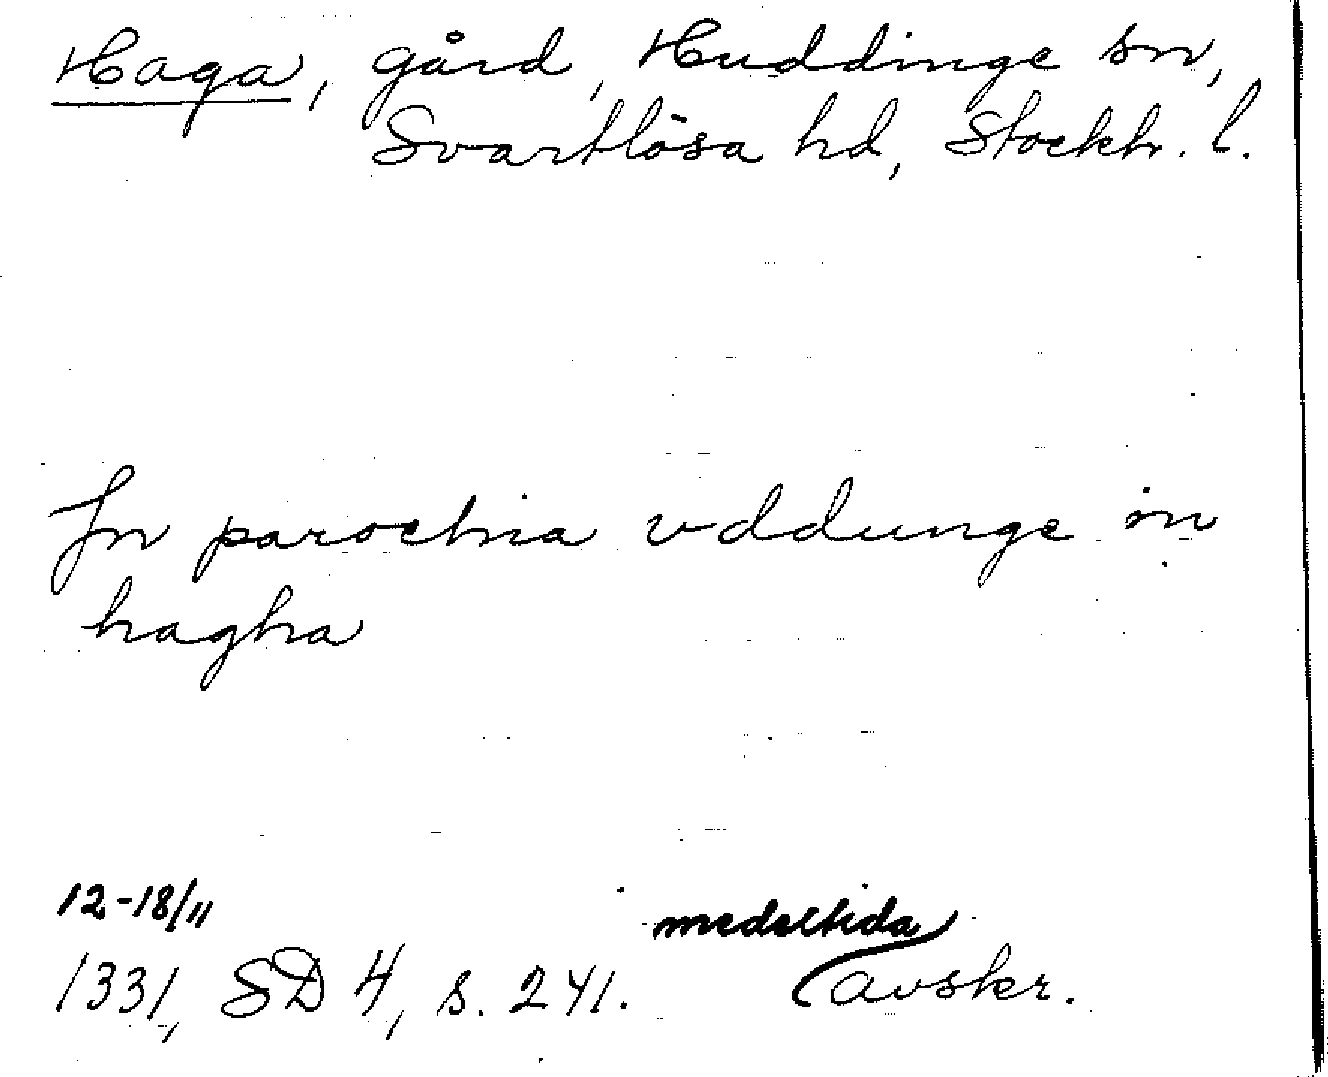 Haga, gård, Huddinge sn,
Svartlösa hd, Stockh. l.
In parochia vddunge in
hagha
12-18/11
1331, SD 4, s. 241. medeltida avskr.